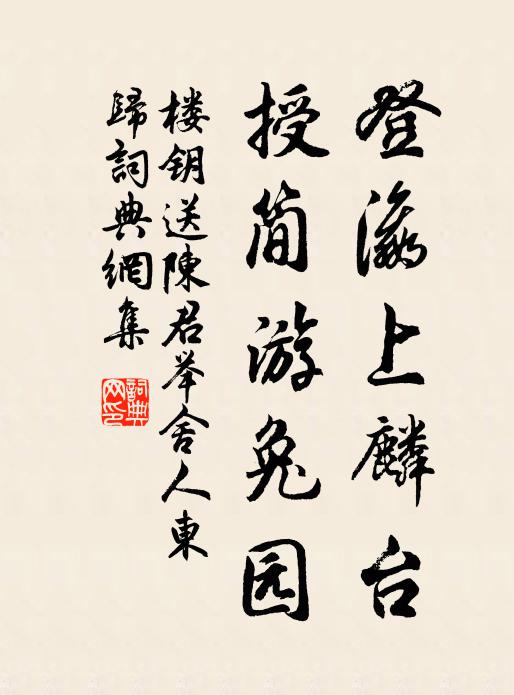 登瀛上麟台
授简游兔园
楼钥送陳君举舍人東
歸詞典網集
詞典网印